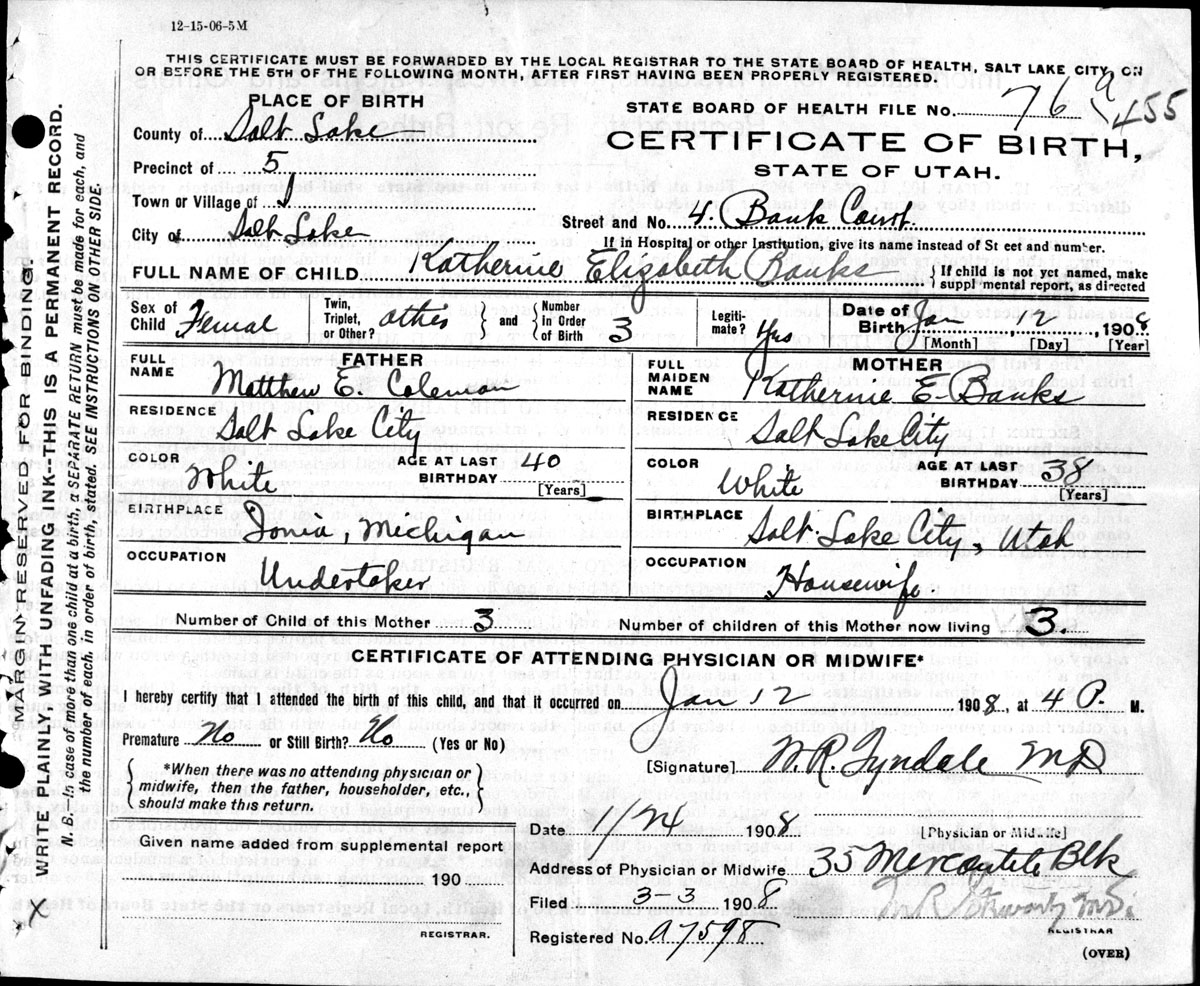 12-15-06-5M
THIS CERTIFICATE MUST BE FORWARDED BY THE LOCAL REGISTRAR TO THE STATE BOARD OF HEALTH, SALT LAKE CITY, ON
OR BEFORE THE 5TH OF THE FOLLOWING MONTH, AFTER FIRST HAVING BEEN PROPERLY REGISTERED.
PLACE OF BIRTH
STATE BOARD OF HEALTH FILE No. 76 a 455
County of Salt Lake
CERTIFICATE OF BIRTH,
Precinct of 5
STATE OF UTAH.
Town or Village of
Street and No. 4. Bank Court.
City of Salt Lake
If in Hospital or other Institution, give its name instead of St eet and number.
FULL NAME OF CHILD. Katherine Elizabeth Banks
If child is not yet named, make
suppl mental report, as directed
Sex of Child Female
Twin, Triplet, or Other? other
and Number In Order of Birth 3
Legiti-mate? Yes
Date of Birth Jan 12 1908
[Month] [Day] [Year]
FATHER
FULL NAME Matthew E. Coleman
RESIDENCE Salt Lake City
COLOR White
AGE AT LAST BIRTHDAY 40 [Years]
BIRTHPLACE Ionia, Mechigan
OCCUPATION Undertaker
MOTHER
FULL MAIDEN NAME Katherine E. Banks
RESIDENCE Salt Lake City
COLOR White
AGE AT LAST BIRTHDAY 38 [Years]
BIRTHPLACE Salt Lake City, Utah
OCCUPATION Housewife.
Number of Child of this Mother 3
Number of children of this Mother now living 3.
CERTIFICATE OF ATTENDING PHYSICIAN OR MIDWIFE*
I hereby certify that I attended the birth of this child, and that it occurred on Jan 12 1908, at 4 P. M.
Premature No or Still Birth? No (Yes or No)
[Signature] W. R. Tyndale MD
*When there was no attending physician or
midwife, then the father, householder, etc.,
should make this return.
[Physician or Midwife]
Date 1/24 1908
Given name added from supplemental report
190
REGISTRAR.
Address of Physician or Midwife 35 Mercantile Blk
Filed 3-3 1908
Registered No. a7598
REGISTRAR
(OVER)
MARGIN RESERVED FOR BINDING
WRITE PLAINLY, WITH UNFADING INK-THIS IS A PERMANENT RECORD.
N. B.-In case of more than one child at a birth, a SEPARATE RETURN must be made for each, and
the number of each, in order of birth, stated. SEE INSTRUCTIONS ON OTHER SIDE.
X